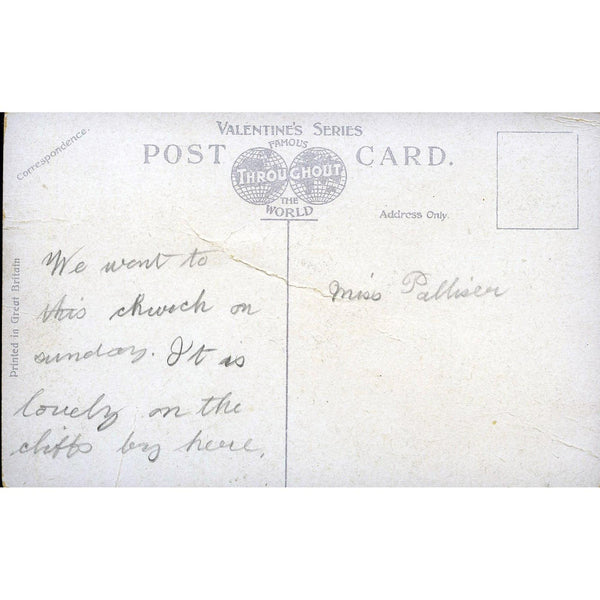 Correspondence.
VALENTINE'S SERIES
FAMOUS
POST CARD.
THROUGHOUT
THE
WORLD
Address Only.
Printed in Great Britain
We went to
this church on
sunday. It is
lovely on the
cliffs by here.
Miss Palliser